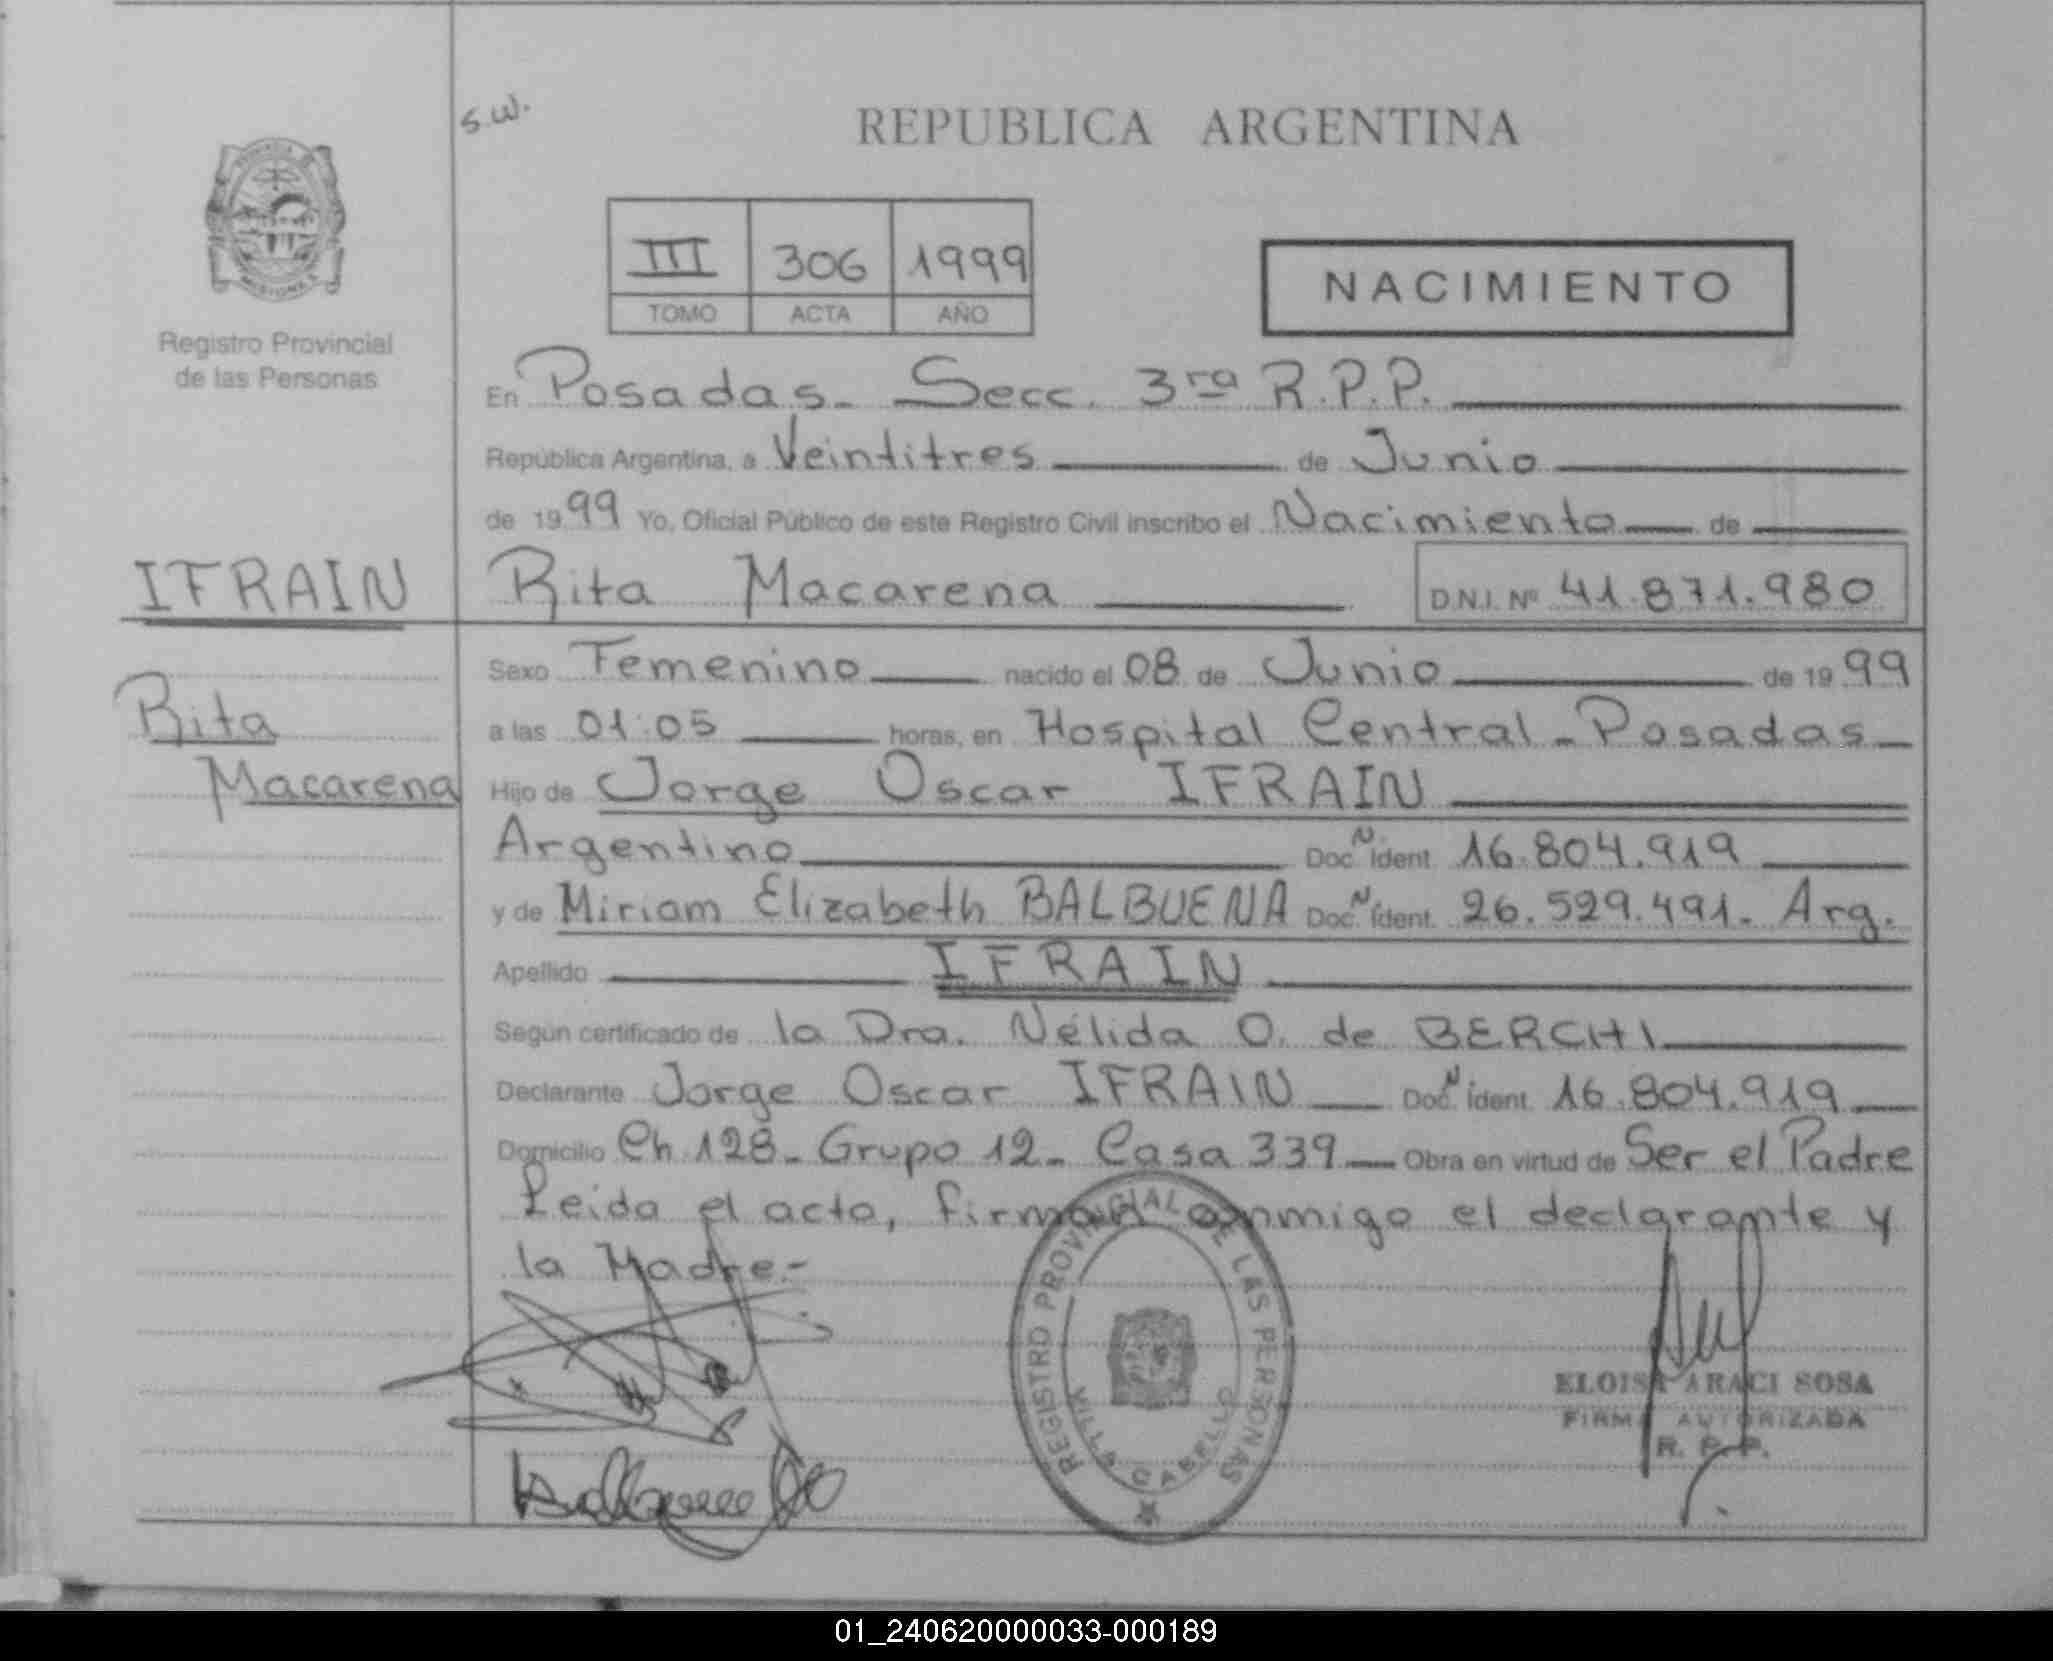 S.W.
REPUBLICA ARGENTINA
PROVINCIA DE
MISIONES
Registro Provincial
de las Personas
III 306 1999
TOMO ACTA AÑO
NACIMIENTO
En Posadas - Secc. 3ra R.P.P.
República Argentina, a Veintitres de Junio
de 1999 Yo, Oficial Público de este Registro Civil inscribo el Nacimiento de
IFRAIN Rita Macarena D.N.I. Nº 41.871.980
Sexo Femenino nacido el 08 de Junio de 1999
Rita
a las 01:05 horas, en Hospital Central - Posadas -
Macarena
Hijo de Jorge Oscar IFRAIN
Argentino Doc. N Ident. 16.804.919
y de Miriam Elizabeth BALBUENA Doc. N Ident. 26.529.491. Arg.
Apellido IFRAIN
Según certificado de la Dra. Nélida O. de BERCHI
Declarante Jorge Oscar IFRAIN Doc. N Ident. 16.804.919
Domicilio Ch 128 - Grupo 12 - Casa 339 Obra en virtud de Ser el Padre
Leida el acta, firman conmigo el declarante y
la Madre.-
REGISTRO PROVINCIAL DE LAS PERSONAS
VILLA CABELLO
ELOISA ARACI SOSA
FIRMA AUTORIZADA
R. P. P.
01_240620000033-000189